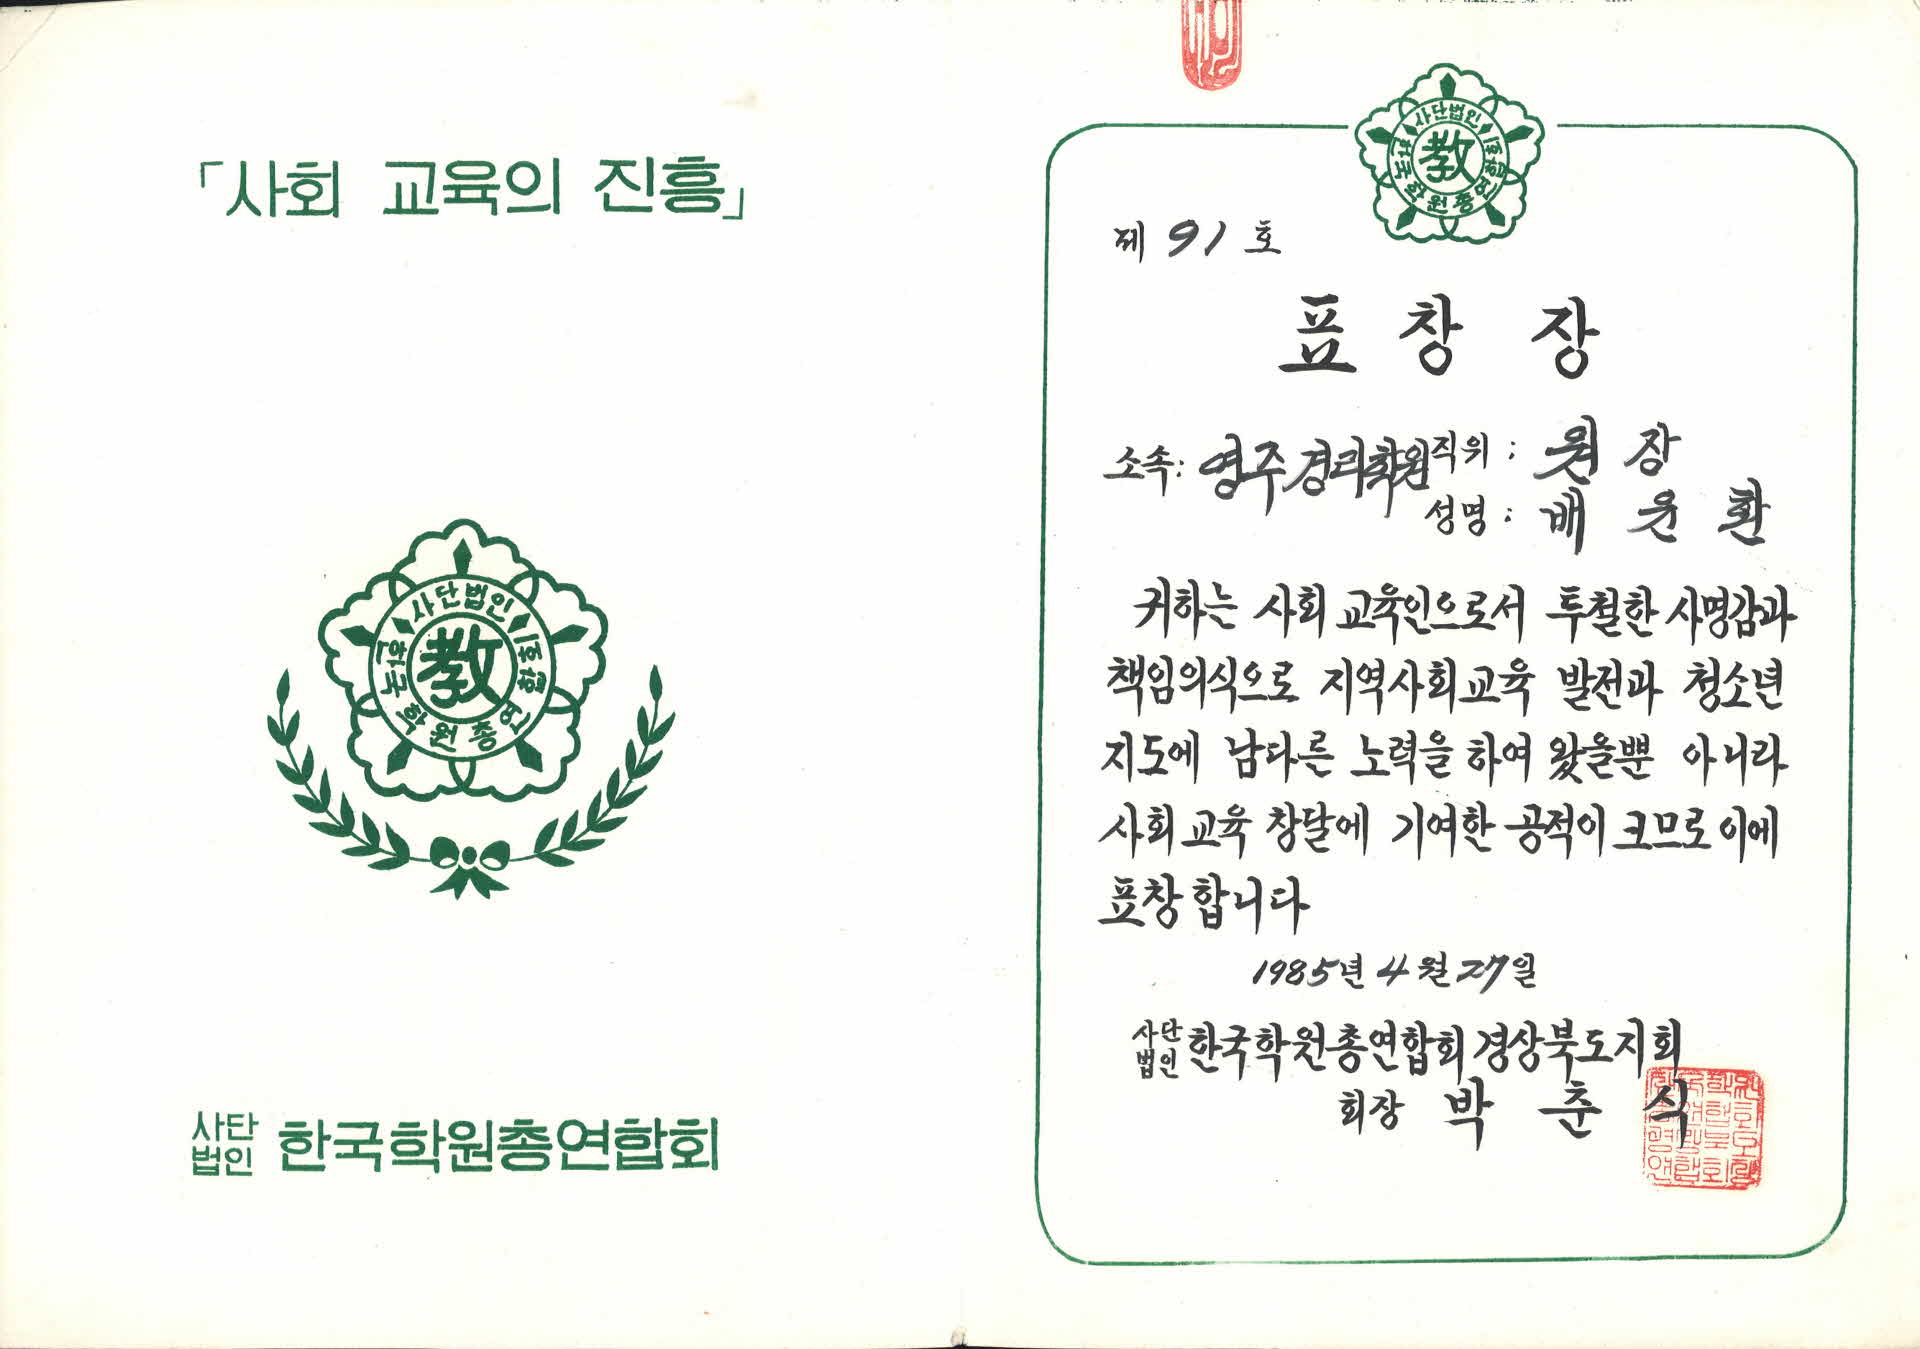 「사회 교육의 진흥」
사단법인 한국학원총연합회
教
사단
법인 한국학원총연합회
사단법인 한국학원총연합회
教
제 91 호
표 창 장
소속: 영주경리학원 직위 : 원 장
성명 : 배 윤 환
귀하는 사회 교육인으로서 투철한 사명감과
책임의식으로 지역사회교육 발전과 청소년
지도에 남다른 노력을 하여 왔을뿐 아니라
사회교육 창달에 기여한 공적이 크므로 이에
표창합니다
1985년 4월 27일
사단
법인 한국학원총연합회 경상북도지회
회장 박 춘 식